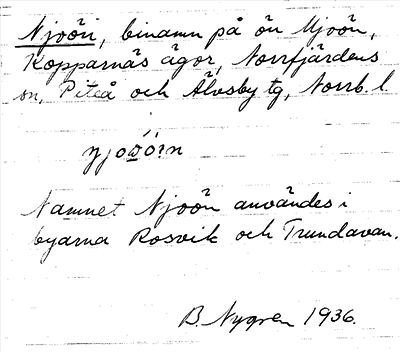 Njoön, binamn på ön Mjoön,
Kopparnäs ägor, Norrfjärdens
sn, Piteå och Älvsby tg, Norrb. l.
Namnet Njoön användes i
byarna Rosvik och Trundavan.
B. Nygren 1936.